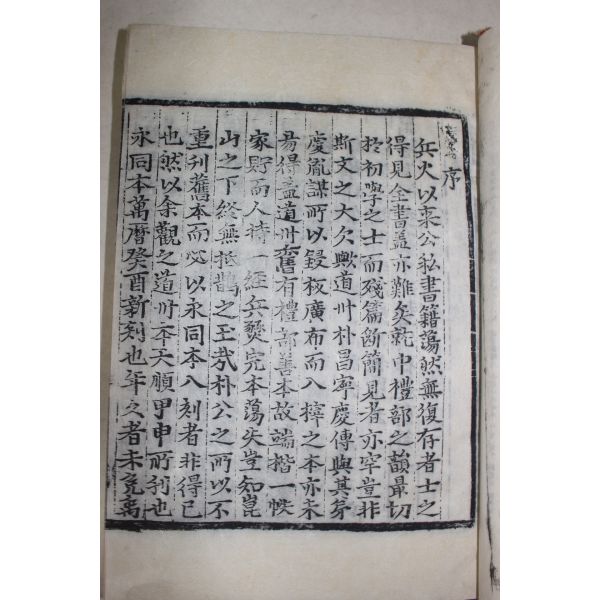 序
兵火以來公私書籍蕩然無復存者士之
得見全書盖亦難矣就中禮部之韻最切
於初學之士而殘篇斷簡見者亦罕豈非
斯文之大欠歟道州朴昌寧慶傳與其弟
慶胤謀所以鋟板廣布而八梓之本亦未
易得盖道州舊有禮部善本故端楷一帙
家貯而人持一經兵燹完本蕩失豈知崑
山之下終無抵鵲之玉哉朴公之所以不
重刋舊本而必以永同本入刻者非得已
也然以余觀之道州本天順甲申所刋也
永同本萬曆癸酉新刻也年久者未免焉